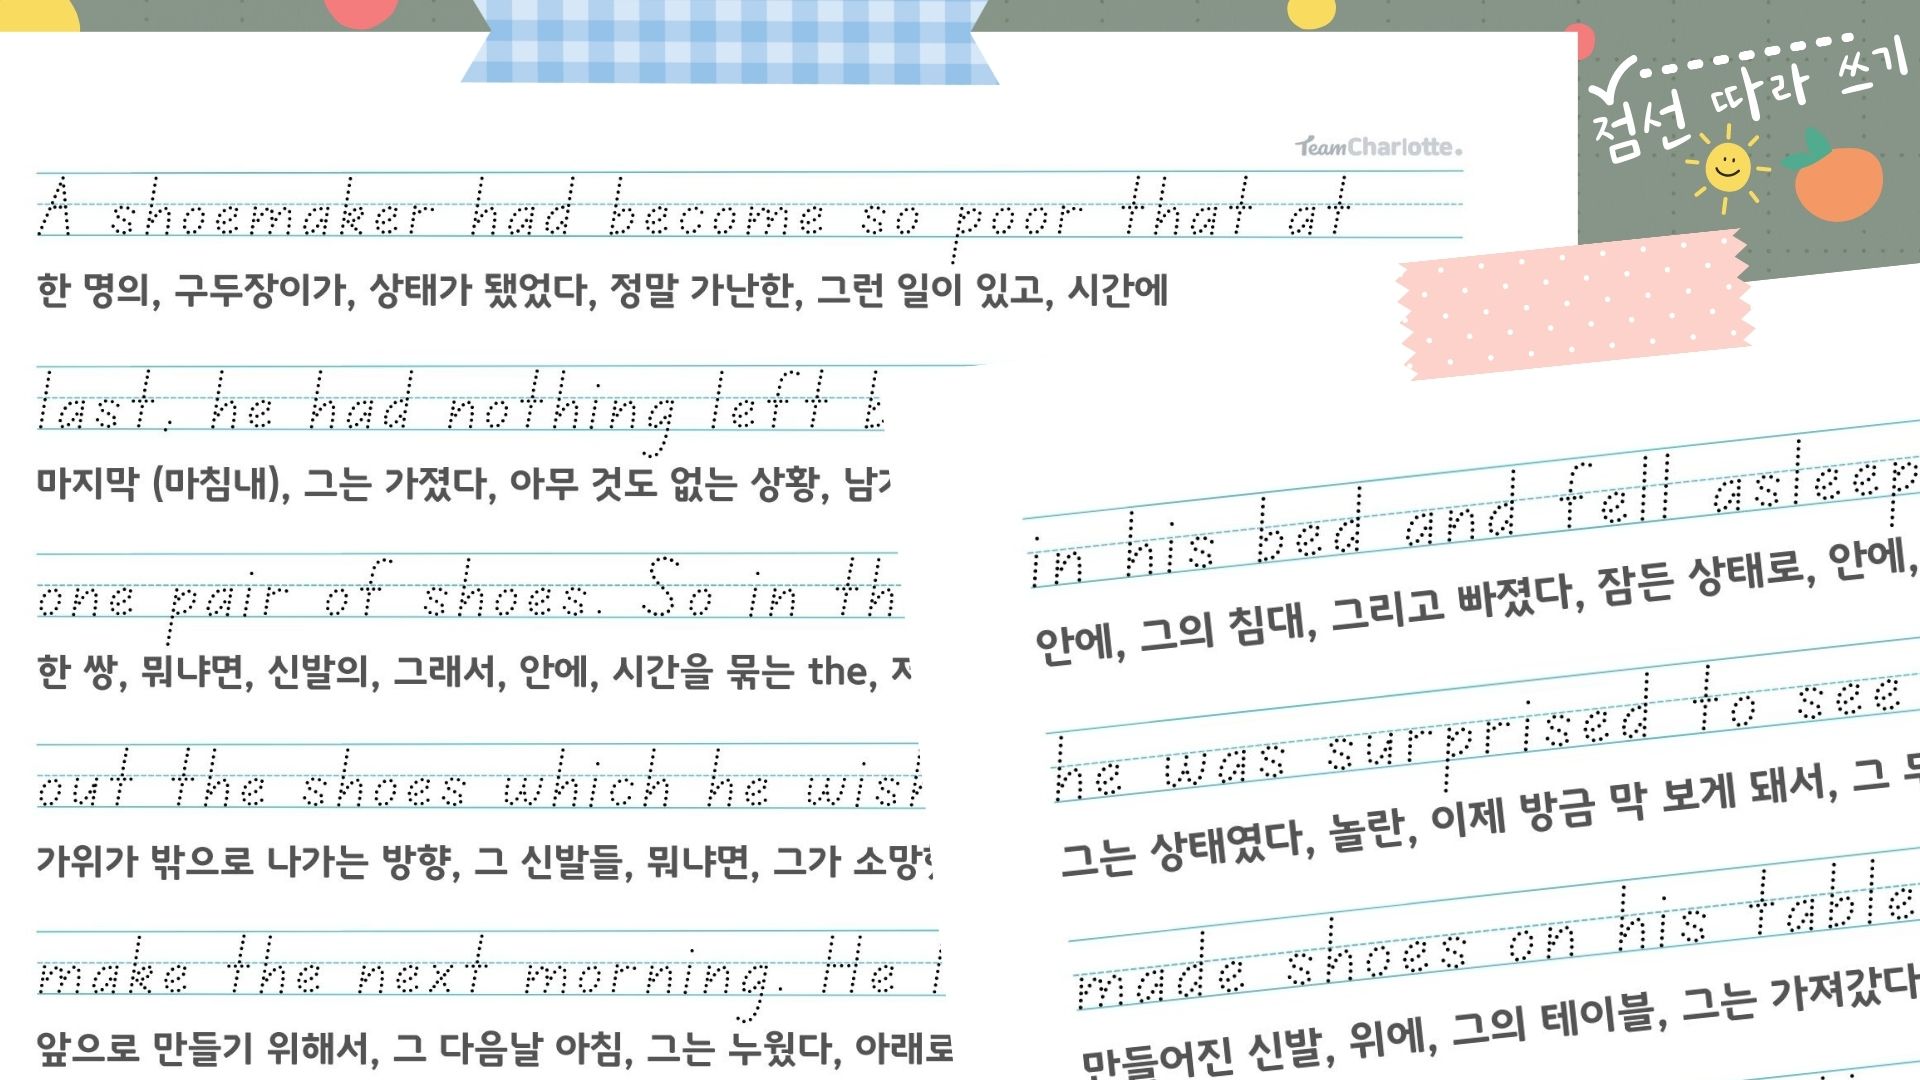 점선 따라 쓰기
TeamCharlotte.
A shoemaker had become so poor that at
한 명의, 구두장이가, 상태가 됐었다, 정말 가난한, 그런 일이 있고, 시간에
last, he had nothing left
마지막 (마침내), 그는 가졌다, 아무 것도 없는 상황,
one pair of shoes. So in th
한 쌍, 뭐냐면, 신발의, 그래서, 안에, 시간을 묶는 the,
out the shoes which he wish
가위가 밖으로 나가는 방향, 그 신발들, 뭐냐면, 그가
make the next morning. He
앞으로 만들기 위해서, 그 다음날 아침, 그는 누웠다, 아래로
in his bed and fell asleep
안에, 그의 침대, 그리고 빠졌다, 잠든 상태로, 안에,
he was surprised to see
그는 상태였다, 놀란, 이제 방금 막 보게 돼서, 그
made shoes on his table
만들어진 신발, 위에, 그의 테이블, 그는 가져갔다